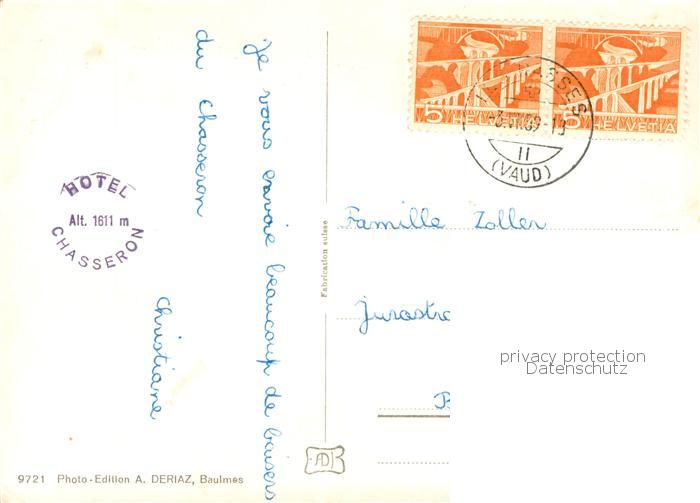 Je vous envoie beaucoup de baisers
du Chasseron
Christiane
HOTEL
Alt. 1611 m
CHASSERON
9721 Photo-Edition A. DERIAZ, Baulmes
Fabrication suisse
AD
5 HELVETIA
5 HELVETIA
II
(VAUD)
Famille Zoller
privacy protection
Datenschutz